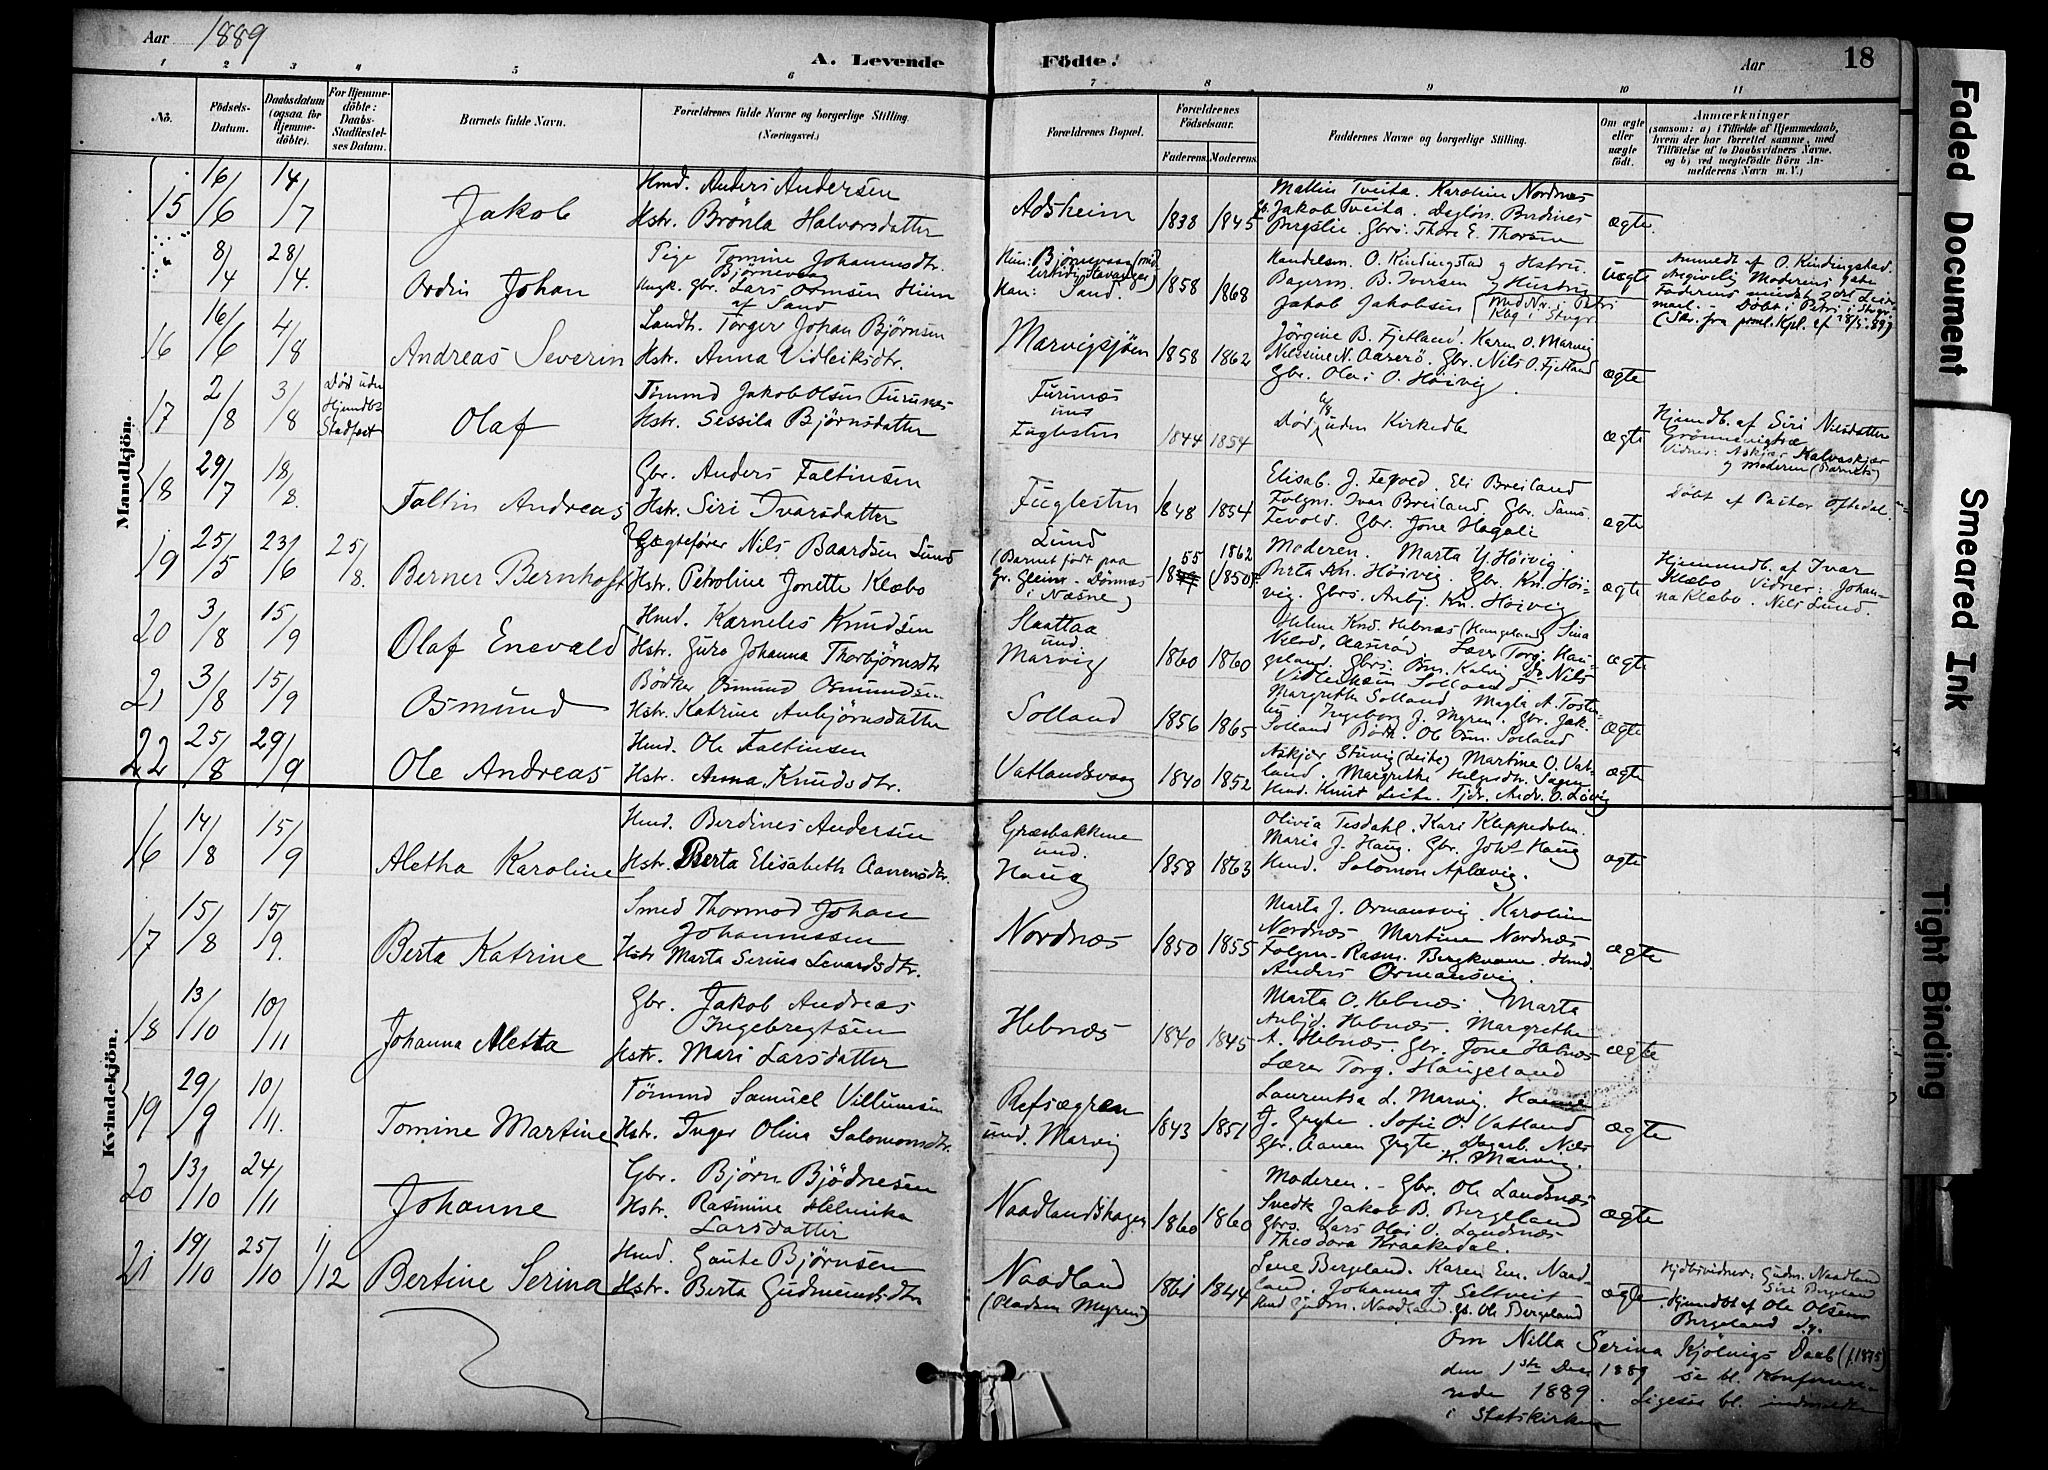 Aar 1889
A. Levende Födte.
Aar 18
1 2 3 4 5 6 7 8 9 10 11
No.
Födsels-Datum.
Daabsdatum (ogsaa for Hjemme-döbte).
For Hjemme-döbte: Daabs-Stadfæstel-ses Datum.
Barnets fulde Navn.
Forældrenes fulde Navne og borgerlige Stilling. (Næringsvei.)
Forældrenes Bopæl.
Forældrenes Födselsaar.
Faderens. Moderens.
Faddernes Navne og borgerlige Stilling.
Om ægte eller uægte födt.
Anmærkninger
(saasom: a) i Tilfælde af Hjemmedaab, hvem der har forrettet samme, med Tilföielse af to Daabsvidners Navne, og b) ved uægtefödte Börn An-melderens Navn m. V.)
Mandkjön.
15 16/6 14/7 Jakob
Hmd. Anders Andersen
Hstr. Brönla Halvorsdatter
Adsheim 1838 1845
Mallin Tveita. Karoline Nordnæs
Jakob Tveita.
Gbrs. Thore E. Thorsen
ægte.
8/4 28/4 Ordin Johan
Pige Tomine Johannesdtr.
Björnevaag
Ungk. gbr. Lars Ormsen Hiim
af Sand
Sand. 1858 1868
Handelsm. O. Kindingstad og Hstru.
Bagerm. B. Iversen og Hustru
Jakob Jakobsen
Uægte
Anmeldt af O. Kindingstad.
16 16/6 4/8 Andreas Severin
Landh. Torger Johan Björnsen
Hstr. Anna Vidleiksdtr.
Marvigsjöen 1858 1862
Jörgine B. Fjetland. Karen O. Marvig
Nilsine N. Aaserö. Gbr. Nils O. Fjetland
Gbr. Olai O. Höivig.
ægte
17 2/8 3/8 Död uden Hjemdbs Stadfest
Olaf
Tömmd Jakob Olsen Furenæs
Hstr. Sessila Björnsdatter
Furenæs
und
Fuglesten 1844 1854
Död uden Kirkedb
ægte
Hjemdb. af Siri Nilsdatter
18 29/7 18/8. Faltin Andreas
Gbr. Anders Faltinsen
Hstr. Siri Ivarsdatter
Fuglesten 1848 1854
Elisab. J. Fevold. Eli Breiland
Folgm. Ivar Breiland. Gbr. Sams.
Fevold. Gbr. Jone Hagali
ægte
Döbt af Pastor Oftedal.
19 25/5 23/6 25/8. Berner Bernhoft
Gægtefører Nils Baardsen Lund
Hstr. Petroline Jonette Klæbo
Lund
(Barnet födt paa
i Næsne)
55 1862
(1850)
Moderen. Marta Y. Höivig.
Berta Kn. Höivig. Gbr. Kn. Höi-
vig. Gbrs. Anbj. Kn. Höivig
ægte
Hjemmdb. af Ivar
Klæbo Vidner: Johan-
na Klæbo. Nils Lund
20 3/8 15/9 Olaf Enevald
Hmd. Karneles Knudsen
Hstr. Guro Johanna Thorbjörnsdtr
Slaattaa
und
Marvig 1860 1860
Helene Knd. Hebnæs (Haugeland) Sina
ægte
21 3/8 15/9 Osmund
Bödker Osmund Osmundsen
Hstr. Katrine Anbjörnsdatter
Solland 1856 1865
Margrethe Solland Megla A. Tosten-
sen, Ingeborg J. Myren. Gbr. Jak.
Solland Bödk. Ole Osm. Solland
ægte
22 25/8 29/9 Ole Andreas
Hmd. Ole Faltinsen
Hstr. Anna Knudsdtr.
Vatlandsvaag 1840 1852
Askjær Stuvig (Leite) Martine O. Vat-
land. Margrethe Helgesdtr.
Hmd. Knut Leite. Tjdr. Andr. O. Lövig
ægte
Kvindekjön.
16 14/8 15/9 Aletha Karoline
Hmd. Berdines Andersen
Hstr. Berta Elisabeth Aanensdtr.
Græsbakkene
und.
Haug 1858 1863
Olivia Tesdahl. Kari Kleppedalm.
Maria J. Haug. Gbr. Johs Haug
Hmd. Solomon Aplavig.
ægte
17 15/8 15/9. Berta Katrine
Smed Thormod Johan
Johannessen
Hstr Marta Serina Levardsdtr.
Nordnæs 1850 1855
Marta J. Ormansvig. Karoline
Nordnæs Martine Nordnæs
Folgm. Rasm. Bergkvam. Hmd.
Anders Ormansvig.
ægte
18 13/10 10/11 Johanna Aletta
Gbr. Jakob Andreas
Ingebregtsen
Hstr. Mari Larsdatter
Hebnæs 1840 1845
Marta O. Hebnæs. Marta
Anbjd. Hebnæs. Margrethe
A. Hebnæs. Gbr. Jone Hebnæs
Lærer Torg. Haugeland
ægte
19 29/9 10/11. Tomine Martine
Tömmd Samuel Villumsen
Hstr. Inger Olina Salomonsdtr.
Refsægren
und. Marvig 1843 1851
Laurentsa L. Marvig. Hanne
J. Gryte. Sofie O. Vatland
Gbr. Aanen Gryte. Dagarb. Nils
K. Marvig.
ægte
20 13/10 24/11 Johanne
Gbr. Björn Bjödnesen
Hstr. Rasmine Helmika
Larsdatter
Naadlandshagen 1860 1860
Moderen. - Gbr. Ole Landsnæs
Svedk Jakob B. Bergeland
Gbrs. Lars Olai O. Landsnæs
Theodora Kraakedal.
ægte
21 19/10 25/10 1/12 Bertine Serina
Hmd. Gaute Björnsen
Hstr. Berta Gudmundsdtr
Naadland
(Pladsen Myren) 1861 1844
Lene Bergeland. Karen Em. Naad-
land. Johanna J. Seltveit
Hmd Gudm. Naadland. gb. Ole Bergeland
ægte.
Hjdbsvidner: Gudm. Naadland
Siri Bergeland
Hjemdbt af Ole Olsen
Bergeland
Om Nilla Serina Kjölvigs Daab (f. 1875)
den 1ste Dec 1889 se bl. Konfirme-
rede 1889. Ligesaa bl. indmeldte
i Statskirken
Faded Document
Smeared Ink
Tight Binding